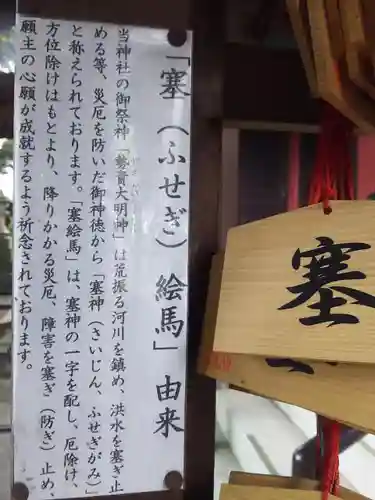 「塞（ふせぎ）絵馬」由来
当神社の御祭神「勢貴大明神」は荒振る河川を鎮め、洪水を塞ぎ止
める等、災厄を防いだ御神徳から「塞神（さいじん、ふせぎがみ）」
と称えられております。「塞絵馬」は、塞神の一字を配し、厄除け、
方位除けはもとより、降りかかる災厄、障害を塞ぎ（防ぎ）止め、
願主の心願が成就するよう祈念されております。
塞